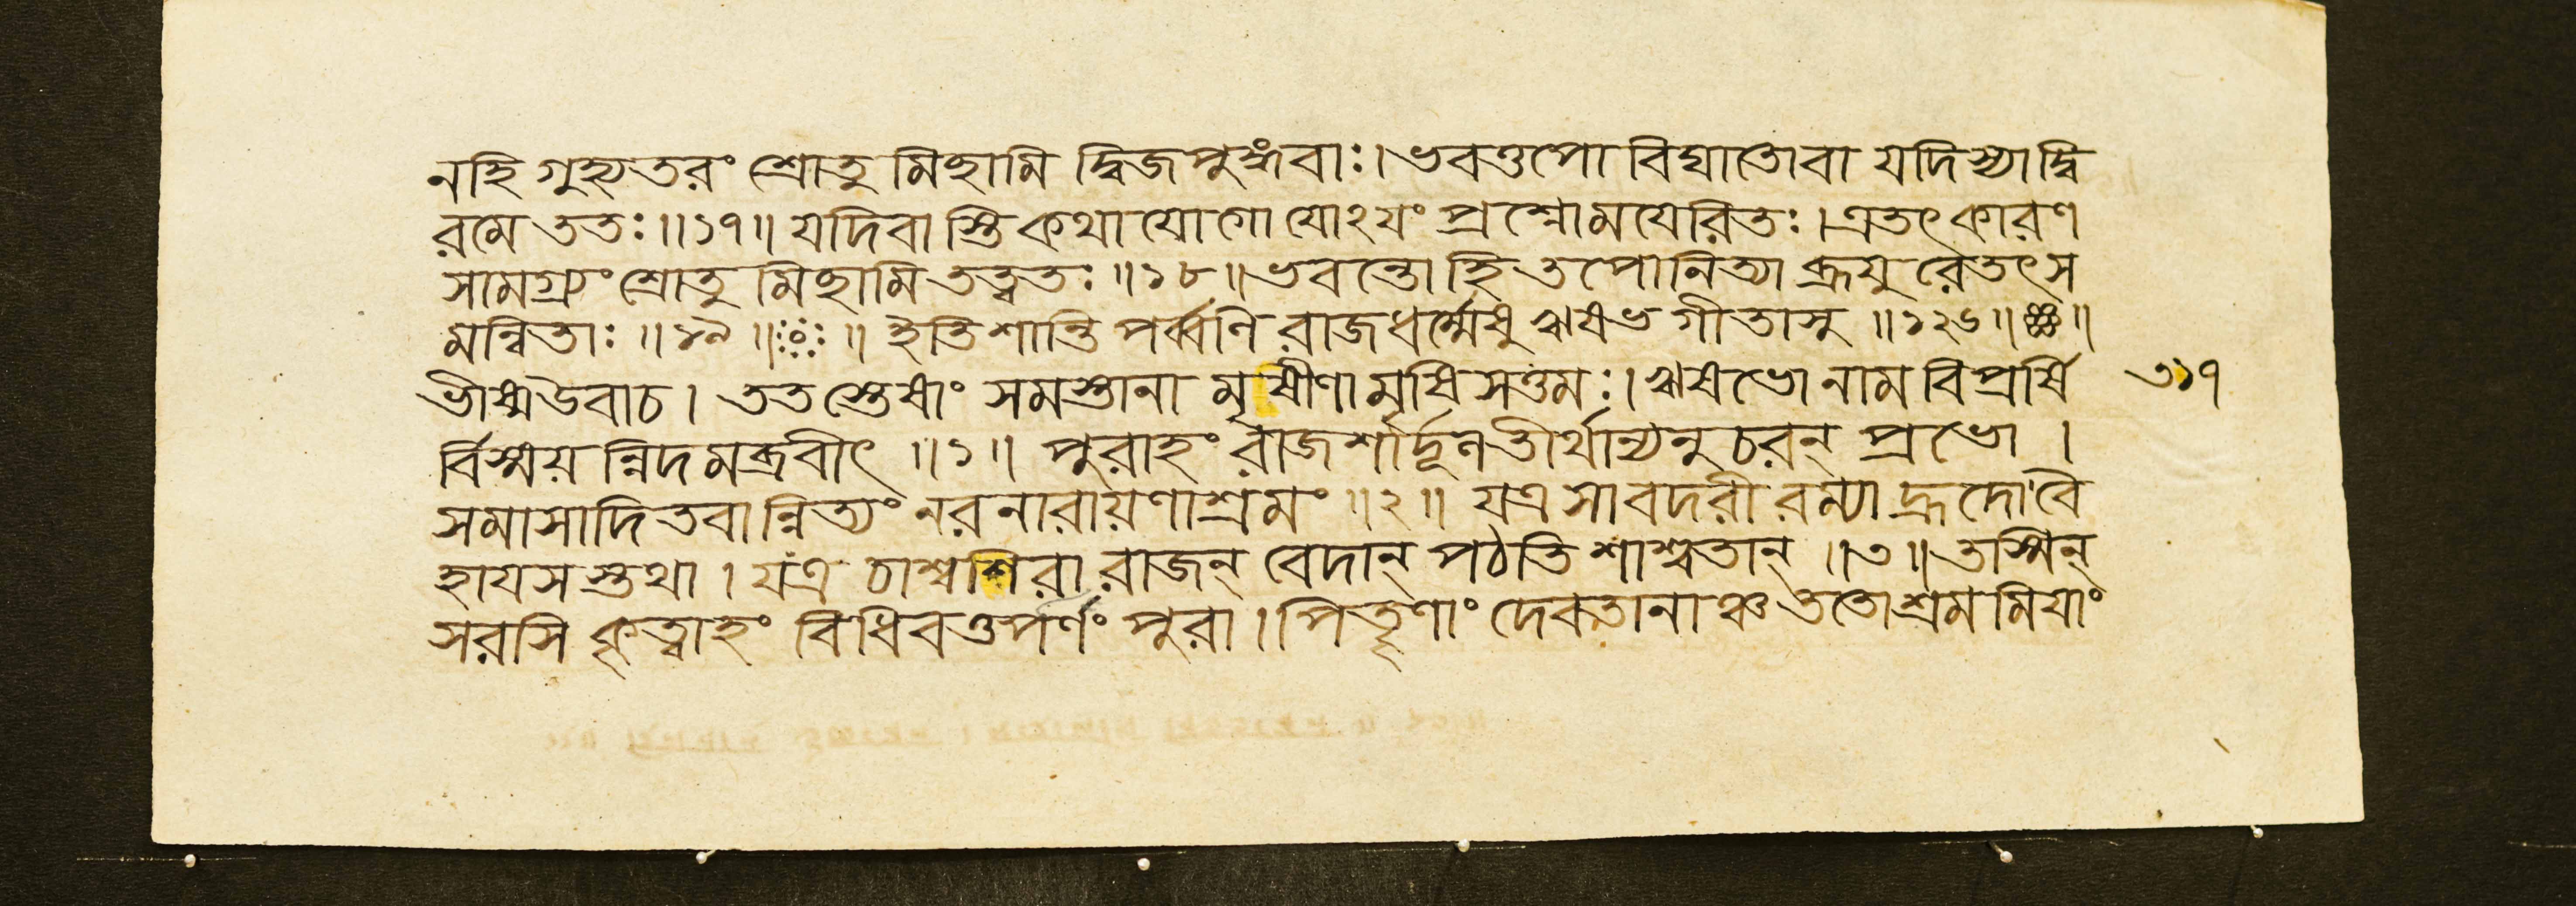 নহি গুহ্যতরং শ্রোতুমিছামি দ্বিজপুঙ্গবাঃ। ভবত্তপোবিঘাতোবা যদিস্যাদ্বি
রমে ততঃ॥১৭॥ যদিবাস্তি কথাযোগো যোঽযং প্রশ্নোমযেরিতঃ। এতৎকারণ
সামগ্র্যং শ্রোতুমিছামি তত্ত্বতঃ॥১৮॥ ভবন্তোহি তপোনিত্যা ব্রূযুরেতৎস
মন্বিতাঃ॥১৯॥ ॥ ইতি শান্তিপর্ব্বণি রাজধর্ম্মেষু ঋষভগীতাসু॥১২৬॥
ভীষ্মউবাচ। ততস্তেষাং সমস্তানামৃষীণামৃষিসত্তমঃ। ঋষভোনাম বিপ্রর্ষি
৩১৭
র্বিস্ময়ন্নিদমব্রবীৎ॥১॥ পুরাহং রাজশার্দূল তীর্থান্যনুচরন্ প্রভো।
সমাসাদিতবান্নিত্যং নরনারায়ণাশ্রমং॥২॥ যত্র সা বদরী রম্যা হ্রদোবৈ
হাযসস্তথা। যত্র চাশ্বশিরা রাজন্ বেদান্ পঠতি শাশ্বতান্॥৩॥ তস্মিন্
সরসি কৃত্বাহং বিধিবত্তর্পণং পুরা। পিতৄণাং দেবতানাঞ্চ ততোশ্রমমিযাং